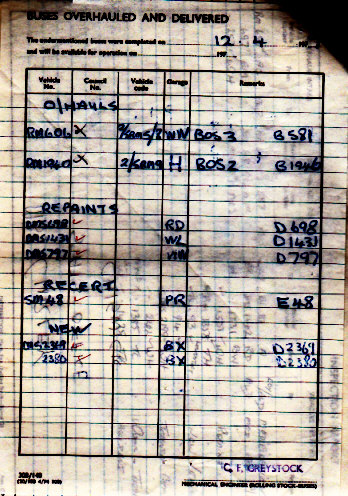 BUSES OVERHAULED AND DELIVERED
The undermentioned buses were completed on 12 . 4 197
and will be available for operation on 197
Vehicle No. Council No. Vehicle code Garage Remarks
O/HAULS
RM606 X WN BOS 3 B581
RM1960 X 2/5RM9 H BOS 2 B1946
REPAINTS
DMS698 ✓ RD D698
DMS1431 ✓ WL D1431
DMS797 ✓ WN D797
RECERT
SM48 ✓ PR E48
NEW
DMS2369 BX D2369
2380 BX D2380
C. F. GREYSTOCK
MECHANICAL ENGINEER (ROLLING STOCK-BUSES)